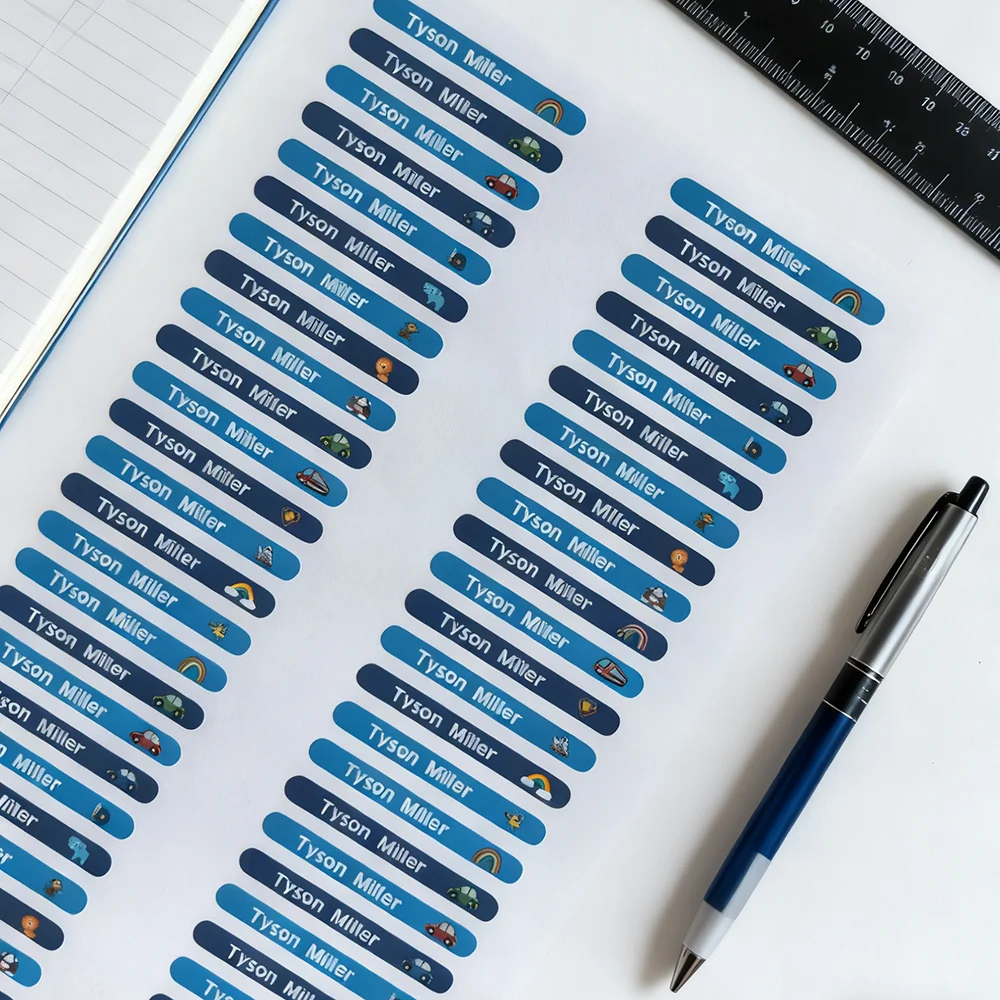 Tyson Miller
Tyson Miller
Tyson Miller
Tyson Miller
Tyson Miller
Tyson Miller
Tyson Miller
Tyson Miller
Tyson Miller
Tyson Miller
Tyson Miller
Tyson Miller
Tyson Miller
Tyson Miller
Tyson Miller
Tyson Miller
Tyson Miller
Tyson Miller
yson Miller
Miller
Tyson Miller
Tyson Miller
Tyson Miller
Tyson Miller
Tyson Miller
Tyson Miller
Tyson Miller
Tyson Miller
Tyson Miller
Tyson Miller
Tyson Miller
Tyson Miller
Tyson Miller
Tyson Miller
Tyson Miller
Tyson Miller
Tyson Miller
Tyson Miller
Tyson Miller
Tyson Miller
Tyson Miller
Tyson